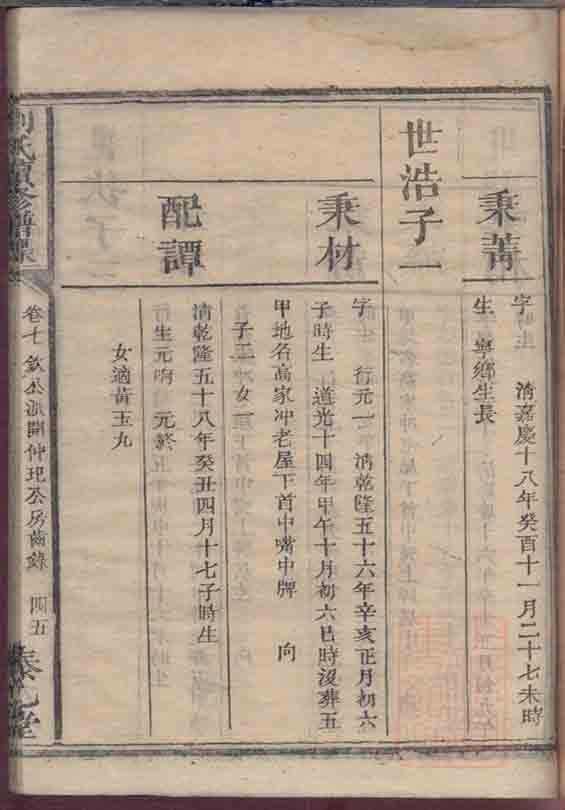 秉菁
字 清嘉慶十八年癸酉十一月二十七未時
生 寧鄉生長
世浩子一
秉材
字 行元一 清乾隆五十六年辛亥正月初六
子時生 道光十四年甲午十月初六巳時沒葬五
甲地名高家冲老屋下首中嘴中牌 向
子二 女一
配譚
清乾隆五十八年癸丑四月十七子時生
行生元 元
女適黃玉九
劉氏續修譜
卷七 欽公派開仲玘公房齒錄 四五
堂